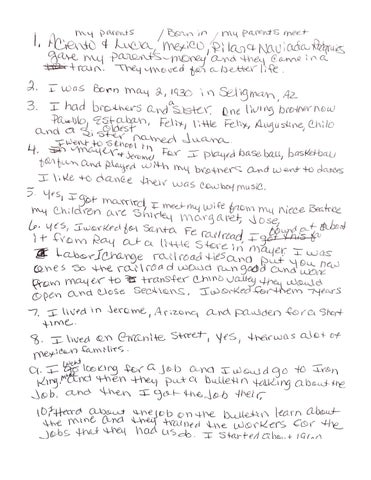 my parents / Born in / my parents meet
1. Aciento & Lucia, mexico, Pilar & Naviada Rodriguez
gave my parents money and they came in a
train. They moved for a better life.
2. I was Born may 2, 1930 in Seligman, AZ
3. I had brothers and a sister. One living brother now
Pueblo, Estaban, Felix, little Felix, Augustine, Chilo
and a oldest sister named Juana.
4. I went to school in mayer & Jerome For I played baseball, basketball
for fun and played with my brothers and went to dances
I like to dance their was cowboy music.
5. yes, I got married, I meet my wife from my niece Beatrice
my children are Shirley Margaret, Jose,
6. yes, I worked for Santa Fe railroad, I found out about
it from Ray at a little store in mayer I was
Labor/change railroad ties and put you new
ones so the railroad would run good and were
from mayer to transfer chino valley they would
open and close sections. I worked for them 7 years
7. I lived in Jerome, Arizona, and pawden for a short
time.
8. I lived on Granite Street, yes, their was a lot of
mexican families.
9. I went looking for a job and I would go to Iron
King mine and then they put a bulletin talking about the
job, and then I got the job their,
10. Heard about the job on the bulletin learn about
the mine and they trained the workers for the
jobs that they had us do. I started about